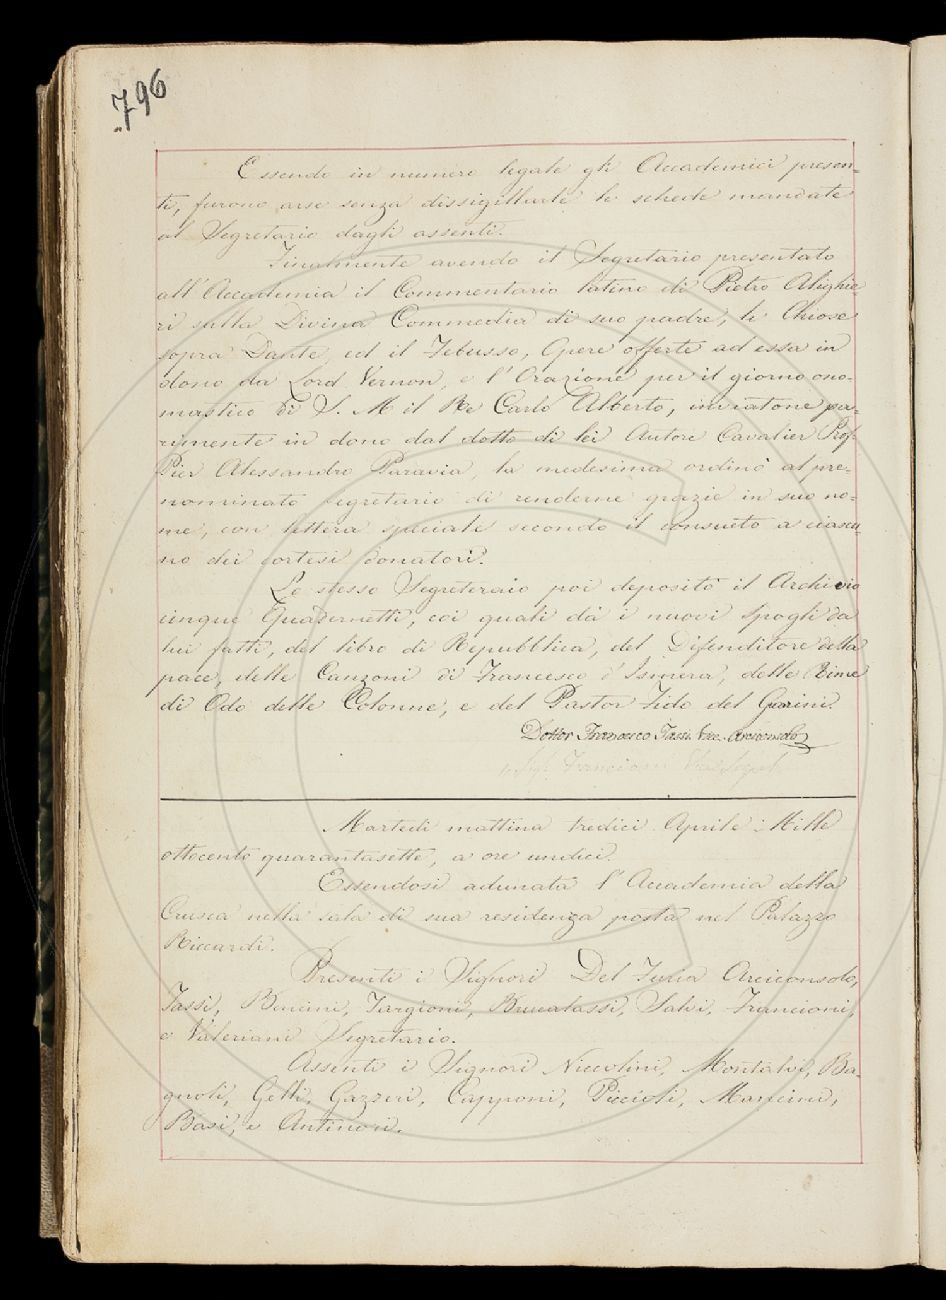 796
Essendo in numero legale gli Accademici presen-
ti, furono arse senza dissigillarle le schede mandate
al Segretario dagli assenti.
Finalmente avendo il Segretario presentato
all'Accademia il Commentario latino di Pietro Alighie-
ri sulla Divina Commedia di suo padre, le Chiose
sopra Dante, ed il Febusso, Opere offerte ad essa in
dono da Lord Vernon, e l'Orazione per il giorno ono-
mastico di S. M. il Re Carlo Alberto, inviatone pa-
rimente in dono dal dotto di lei Autore Cavalier Prof.
Pier Alessandro Paravia, la medesima ordinò al pre-
nominato segretario di renderne grazie in suo no-
me, con lettera speciale secondo il consueto a ciascu-
no dei cortesi donatori.
Lo stesso Segretario poi depositò il Archivio
cinque Quadernetti, coi quali dà i nuovi Spogli da
lui fatti, del libro di Repubblica, del Difenditore della
pace, delle Canzoni di Francesco d'Ismera, delle Rime
di Odo delle Colonne, e del Pastor Fido del Guarini.
Dottor Francesco Tassi Vice Arciconsolo
Francioni
Martedì mattina tredici Aprile Mille
ottocento quarantasette, a ore undici.
Essendosi adunata l'Accademia della
Crusca nella sala di sua residenza posta nel Palazzo
Riccardi.
Presenti i Signori Del Furia Arciconsolo,
Tassi, Bencini, Targioni, Brucalassi, Salvi, Francioni,
e Valeriani Segretario.
Assenti i Signori Niccolini, Montalvi, Ba-
gnoli, Gelli, Gazzeri, Capponi, Piccioli, Mancini,
Basi, e Antinori.